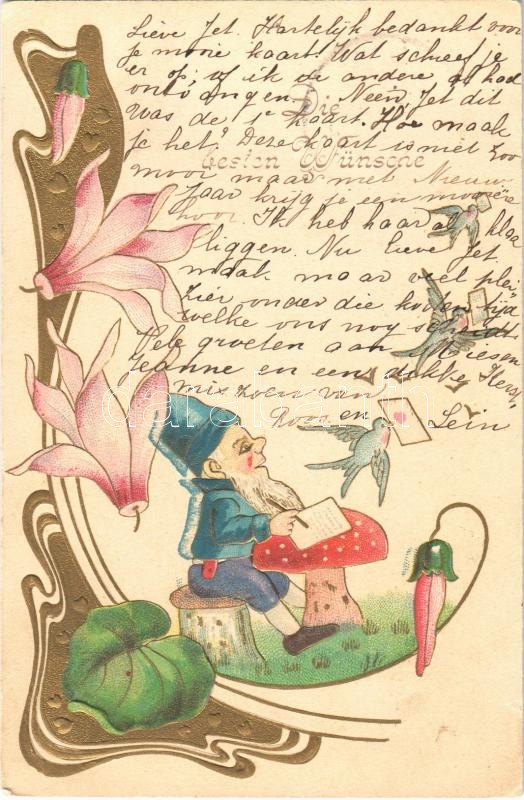 Lieve Jet. Hartelijk bedankt voor
je mooie kaart! Wat schreef je
er op, of ik de andere al had
ontvangen. Neen Jet dit
was de 1e kaart. Hoe maak
je het? Deze kaart is niet zoo
mooi maar met Nieuw
Die
besten Wünsche
Jaar krijg je een mooiere
hoor. Ik heb haar al klaar
liggen. Nu lieve Jet.
maak maar veel plei-
zier onder die korten tijd
welke ons nog
Vele groeten aan Miesen
Jeanne en een dikke Kerst
van
Roos en Lein
darabanth